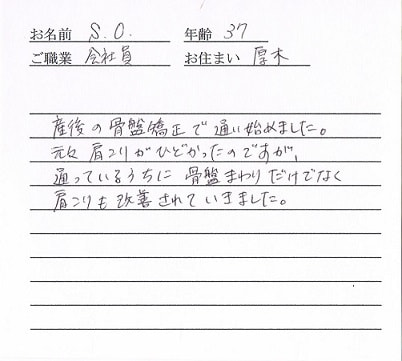 お名前 S.O. 年齢 37
ご職業 会社員 お住まい 厚木
産後の骨盤矯正で通い始めました。
元々肩こりがひどかったのですが、
通っているうちに骨盤まわりだけでなく
肩こりも改善されていきました。